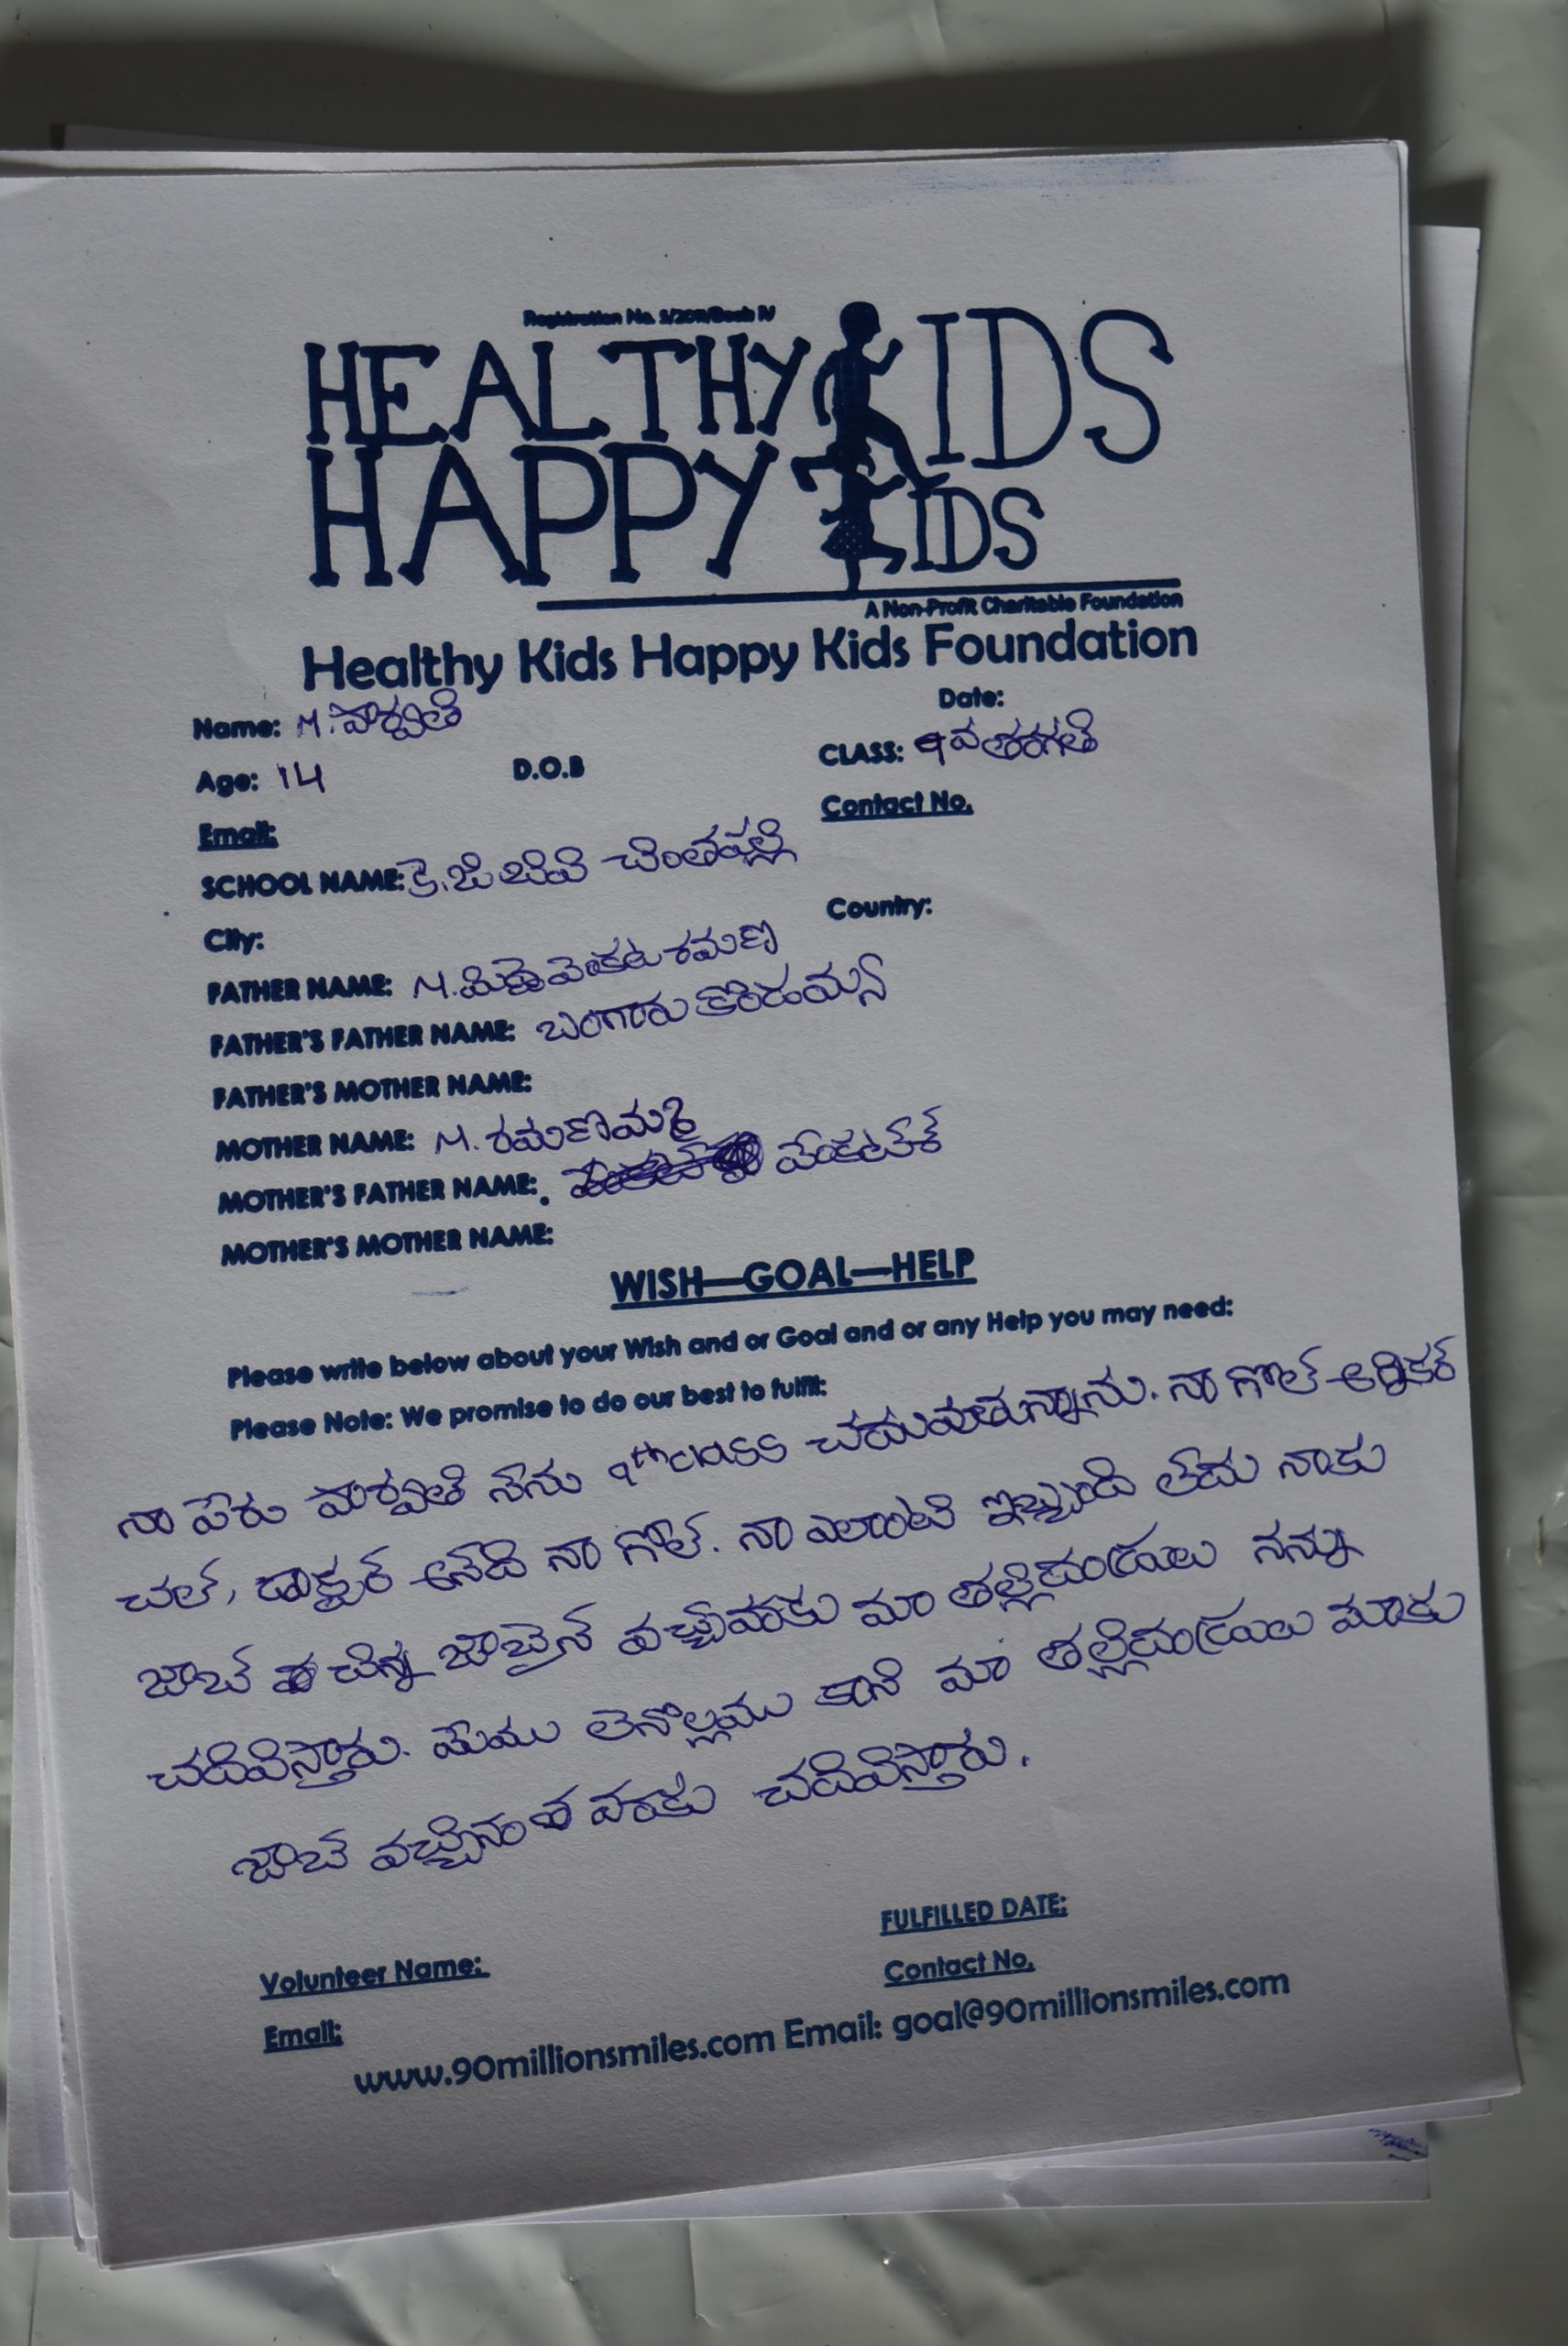 Registration No. 5/2011/Book IV
HEALTHY KIDS
HAPPY KIDS
A Non-Profit Charitable Foundation
Healthy Kids Happy Kids Foundation
Name: M. పార్వతి
Date:
Age: 14 D.O.B CLASS: 9వ తరగతి
Email: Contact No.
SCHOOL NAME: కె.జి బివి చింతపల్లి
City: Country:
FATHER NAME: M. వెంకట రమణ
FATHER'S FATHER NAME: బంగారు కొండయ్య
FATHER'S MOTHER NAME:
MOTHER NAME: M. రమణమ్మ
MOTHER'S FATHER NAME: వేంకటేశ్
MOTHER'S MOTHER NAME:
WISH—GOAL—HELP
Please write below about your Wish and or Goal and or any Help you may need:
Please Note: We promise to do our best to fulfill:
నా పేరు పార్వతి నేను 9th class చదువుతున్నాను. నా గోల్ అగ్రికల్
చల్, డాక్టర్ అనేది నా గోల్. నా ఎలాంటి ఇబ్బంది లేదు నాకు
జాబ్ చిన్న జాబైన్ వచ్చేవరకు మా తల్లిదండ్రులు నన్ను
చదివిస్తారు. మేము లేనోల్లము కాని మా తల్లిదండ్రులు మాకు
జాబ్ వచ్చినంత వరకు చదివిస్తారు.
FULFILLED DATE:
Volunteer Name: Contact No.
Email:
www.90millionsmiles.com Email: goal@90millionsmiles.com